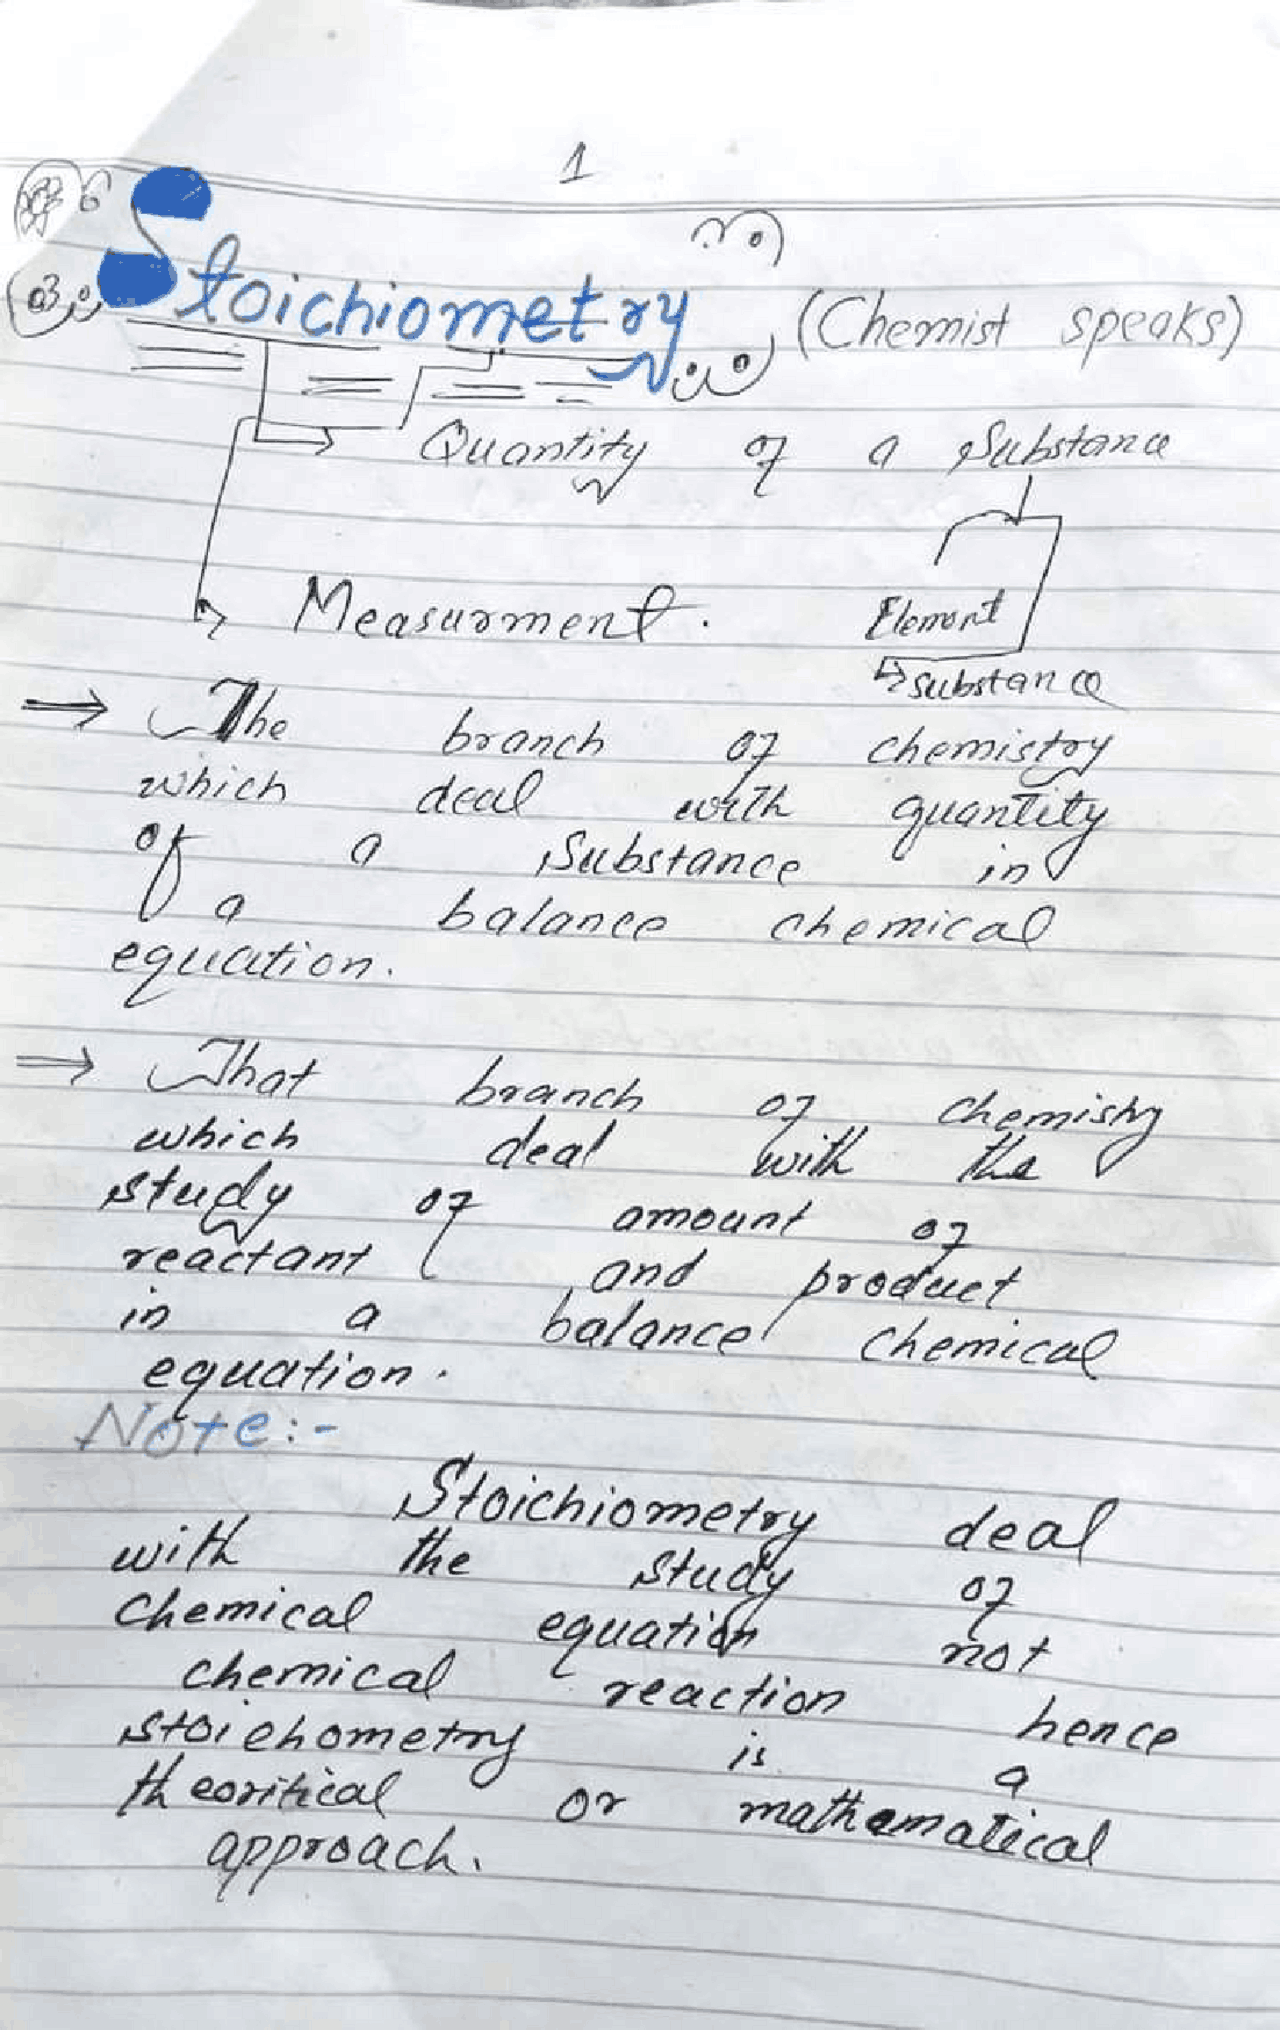 1
Stoichiometry (Chemist speaks)
Quantity of a Substance
Measurment.
Element
substance
⇒ The branch of chemistry
which deal with quantity
of a Substance in
a balance chemical
equation.
⇒ That branch of chemistry
which deal with the
study of amount of
reactant and product
in a balance chemical
equation.
Note:-
Stoichiometry deal
with the study of
chemical equation not
chemical reaction hence
stoichometry is a
theoritical or mathematical
approach.